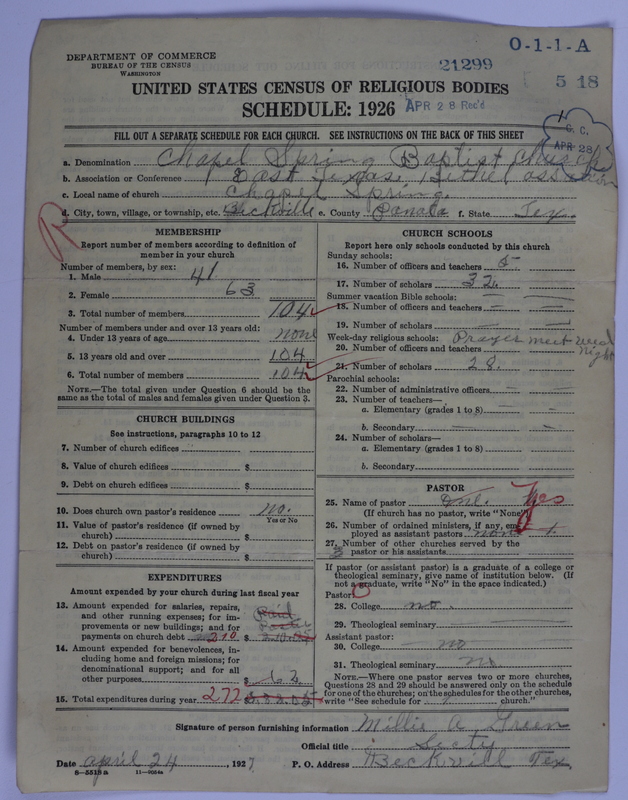 DEPARTMENT OF COMMERCE
BUREAU OF THE CENSUS
WASHINGTON
O-1-1-A
21299
5 18
UNITED STATES CENSUS OF RELIGIOUS BODIES
SCHEDULE: 1926
APR 28 Rec'd
G. C.
APR 28
FILL OUT A SEPARATE SCHEDULE FOR EACH CHURCH. SEE INSTRUCTIONS ON THE BACK OF THIS SHEET
a. Denomination Chapel Spring Baptist Church
b. Association or Conference East Texas
c. Local name of church Chapel Spring
d. City, town, village, or township, etc. Beckville e. County Panola f. State Tex.
MEMBERSHIP
Report number of members according to definition of member in your church
Number of members, by sex:
1. Male 41
2. Female 63
3. Total number of members 104
Number of members under and over 13 years old:
4. Under 13 years of age none
5. 13 years old and over 104
6. Total number of members 104
NOTE.—The total given under Question 6 should be the same as the total of males and females given under Question 3.
CHURCH BUILDINGS
See instructions, paragraphs 10 to 12
7. Number of church edifices
8. Value of church edifices $
9. Debt on church edifices $
10. Does church own pastor's residence no.
Yes or No
11. Value of pastor's residence (if owned by church) $
12. Debt on pastor's residence (if owned by church) $
EXPENDITURES
Amount expended by your church during last fiscal year
13. Amount expended for salaries, repairs, and other running expenses; for improvements or new buildings; and for payments on church debt 210 $
14. Amount expended for benevolences, including home and foreign missions; for denominational support; and for all other purposes $ 62
15. Total expenditures during year 272 $
CHURCH SCHOOLS
Report here only schools conducted by this church
Sunday schools:
16. Number of officers and teachers 5
17. Number of scholars 32
Summer vacation Bible schools:
18. Number of officers and teachers
19. Number of scholars
Week-day religious schools: Prayer meet wed night
20. Number of officers and teachers
21. Number of scholars 28
Parochial schools:
22. Number of administrative officers
23. Number of teachers—
a. Elementary (grades 1 to 8)
b. Secondary
24. Number of scholars—
a. Elementary (grades 1 to 8)
b. Secondary
PASTOR
25. Name of pastor one. Yes
(If church has no pastor, write "None")
26. Number of ordained ministers, if any, employed as assistant pastors none
27. Number of other churches served by the pastor or his assistants
3
If pastor (or assistant pastor) is a graduate of a college or theological seminary, give name of institution below. (If not a graduate, write "No" in the space indicated.)
Pastor:
28. College no.
29. Theological seminary
Assistant pastor:
30. College no
31. Theological seminary no
NOTE.—Where one pastor serves two or more churches, Questions 28 and 29 should be answered only on the schedule for one of the churches; on the schedules for the other churches, write "See schedule for church."
Signature of person furnishing information Millie A Green
Official title Secty
Date april 24, 1927 P. O. Address Beckvill Tex.
8—5513a 11—9064a